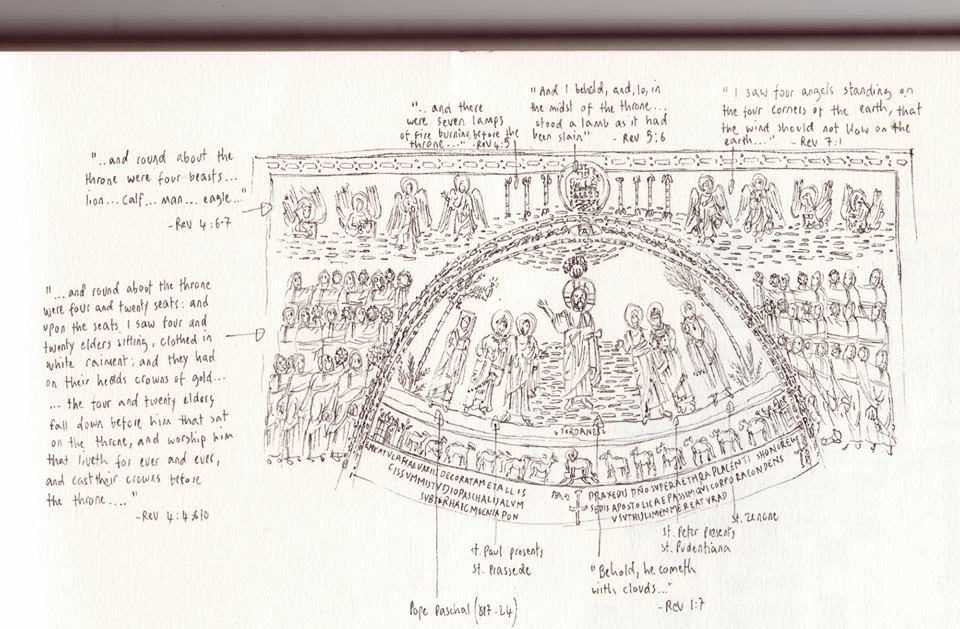 "... and there
were seven lamps
of fire burning before the
throne...." - Rev 4:5
"And I beheld, and, lo, in
the midst of the throne...
stood a lamb as it had
been slain"
- Rev 5:6
"I saw four angels standing on
the four corners of the earth, that
the wind should not blow on the
earth..." - Rev 7:1
"..and round about the
throne were four beasts...
lion... calf... man... eagle..."
- Rev 4:6-7
"...and round about the throne
were four and twenty seats: and
upon the seats I saw four and
twenty elders sitting, clothed in
white raiment; and they had
on their heads crowns of gold...
... the four and twenty elders
fall down before him that sat
on the throne, and worship him
that liveth for ever and ever,
and cast their crowns before
the throne...."
- Rev 4:4 & 10
IORDANES
DECORATA METALLIS
CIS SUMMI STUDIO PASCHALIS ALUM
SUBTER HAEC MOENIA PON
PRAXEDIS DÑO SUPER AETHRA PLACENTIS HONORE
SEDIS APOSTOLICAE PASSIM QUI CORPORA CONDENS
US UT HIS LIMEN MEREATUR AD
St. Paul presents
St. Prassede
Pope Paschal (817-24)
"Behold, he cometh
with clouds..."
- Rev 1:7
St. Peter presents
St. Pudentiana
St. Zenone